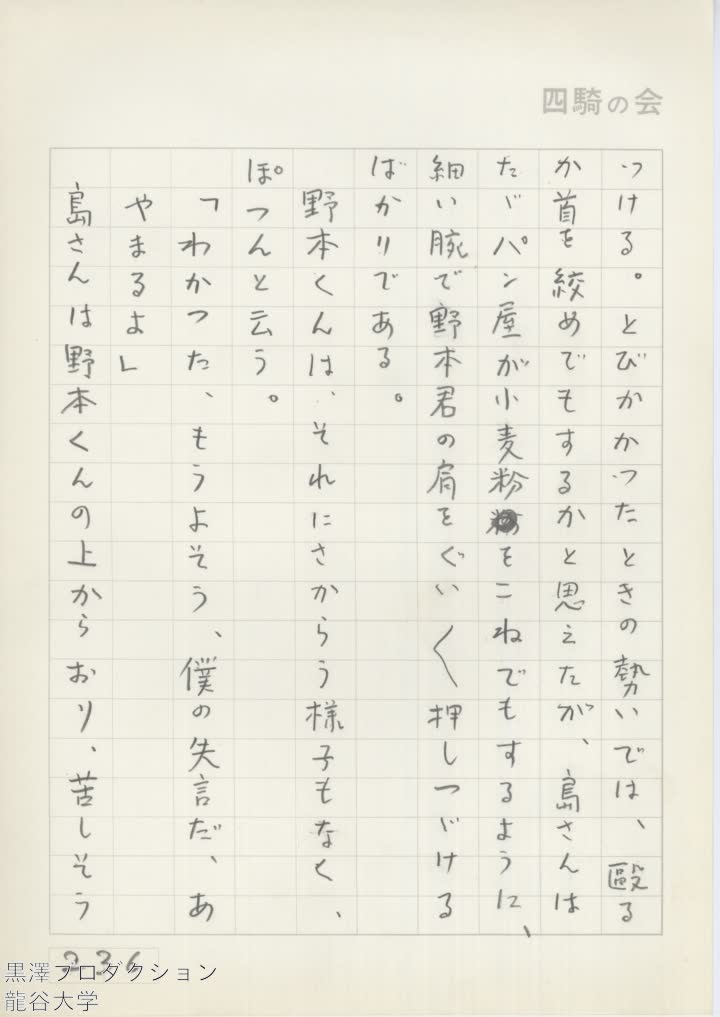 四騎の会
つける。とびかかつたときの勢いでは、毆る
か首を絞めでもするかと思えたが、島さんは
たゞパン屋が小麦粉をこねでもするように、
細い腕で野本君の肩をぐい〱押しつゞける
ばかりである。
野本くんは、それにさからう様子もなく、
ぽつんと云う。
「わかつた、もうよそう、僕の失言だ、あ
やまるよ」
島さんは野本くんの上からおり、苦しそう
236
黒澤プロダクション
龍谷大学